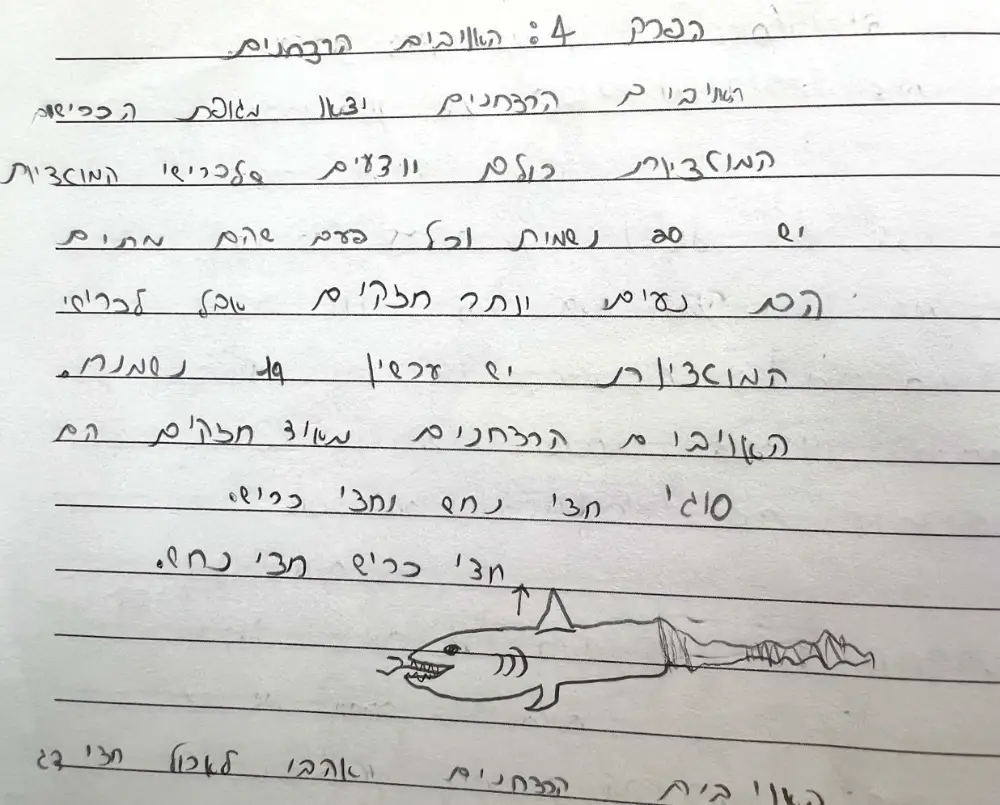 הפרק 4: האוייבים הרצחנים.
האוייבים הרצחנים יצאו מגופת הכרישים
המוטציות כולם יודעים שלכרישי המוטציות
יש 99 נשמות וכל פעם שהם מתים
הם נעים יותר חזקים אבל לכרישי
המוטציות יש עכשיו 19 נשמות.
האוייבים הרצחנים מאוד חזקים הם
סוגי חצי נחש וחצי כריש.
חצי כריש חצי נחש.
האוייבים הרצחנים אהבו לאכול חצי דג